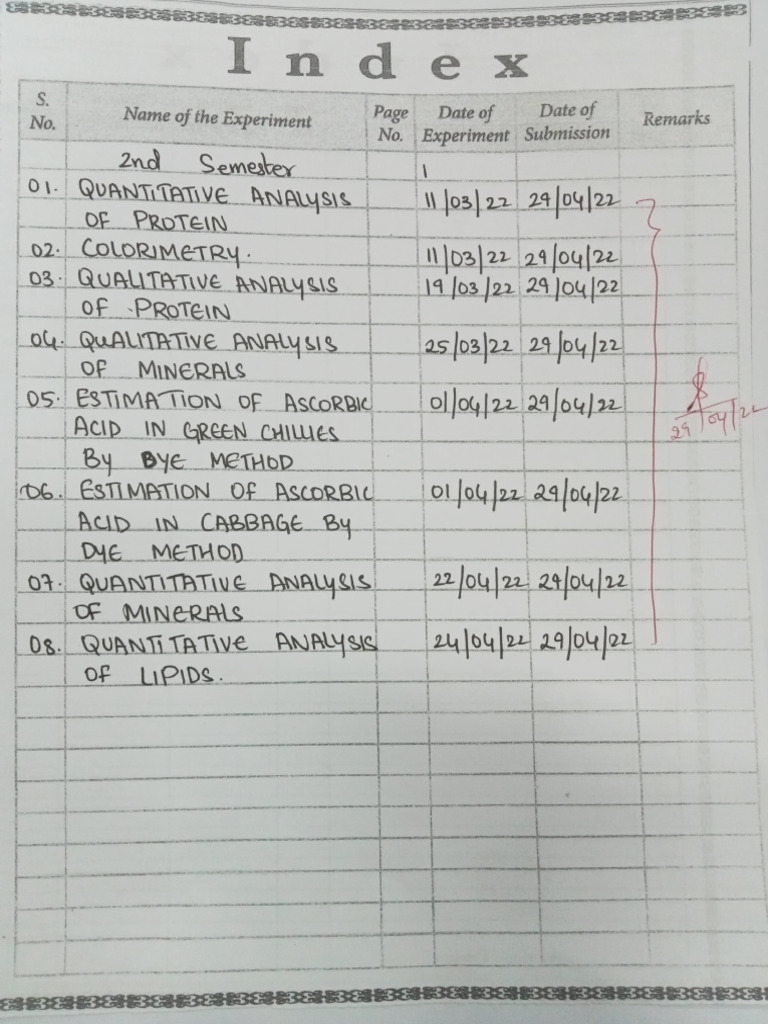 Index
S. No. Name of the Experiment Page No. Date of Experiment Date of Submission Remarks
2nd Semester
01. QUANTITATIVE ANALYSIS 11/03/22 29/04/22
OF PROTEIN
02. COLORIMETRY. 11/03/22 29/04/22
03. QUALITATIVE ANALYSIS 19/03/22 29/04/22
OF PROTEIN
04. QUALITATIVE ANALYSIS 25/03/22 29/04/22
OF MINERALS
05. ESTIMATION OF ASCORBIC 01/04/22 29/04/22
ACID IN GREEN CHILLIES
By DYE METHOD
06. ESTIMATION OF ASCORBIC 01/04/22 29/04/22
ACID IN CABBAGE By
DYE METHOD
07. QUANTITATIVE ANALYSIS 22/04/22 29/04/22
OF MINERALS
08. QUANTITATIVE ANALYSIS 24/04/22 29/04/22
OF LIPIDS.
29/04/22